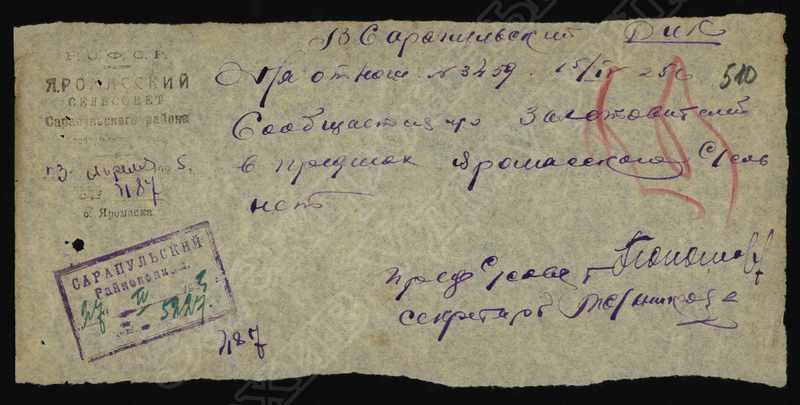 Р. С. Ф. С. Р.
ЯРОМАССКИЙ
СЕЛЬСОВЕТ
Сарапульского района
23 апреля 5.
№ 487
с. Яромаска
В Сарапульский РИК
На отнош №3459 15/IV 25
510
Сообщается что Заготовителей
в пределах Яромасского С/сов
нет
Пред С/совета
Секретарь
САРАПУЛЬСКИЙ
Райисполком
27 IV
5227
487